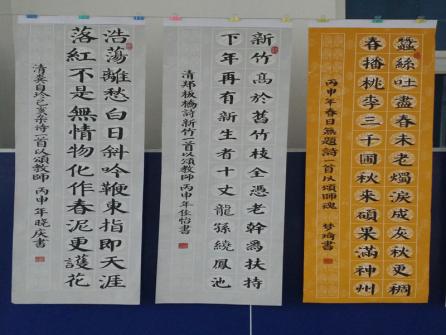 蠶絲吐盡春未老燭淚成灰秋更稠
春播桃李三千圃秋來碩果滿神州
丙申年春日無題詩一首以頌師魂 梦琦書
新竹高於舊竹枝全憑老幹為扶持
下年再有新生者十丈龍孫繞鳳池
清郑板橋詩新竹一首以頌教師 丙申年佳怡書
浩蕩離愁白日斜吟鞭東指即天涯
落紅不是無情物化作春泥更護花
清龔自珍己亥杂诗一首以頌教師 丙申年晓庆書